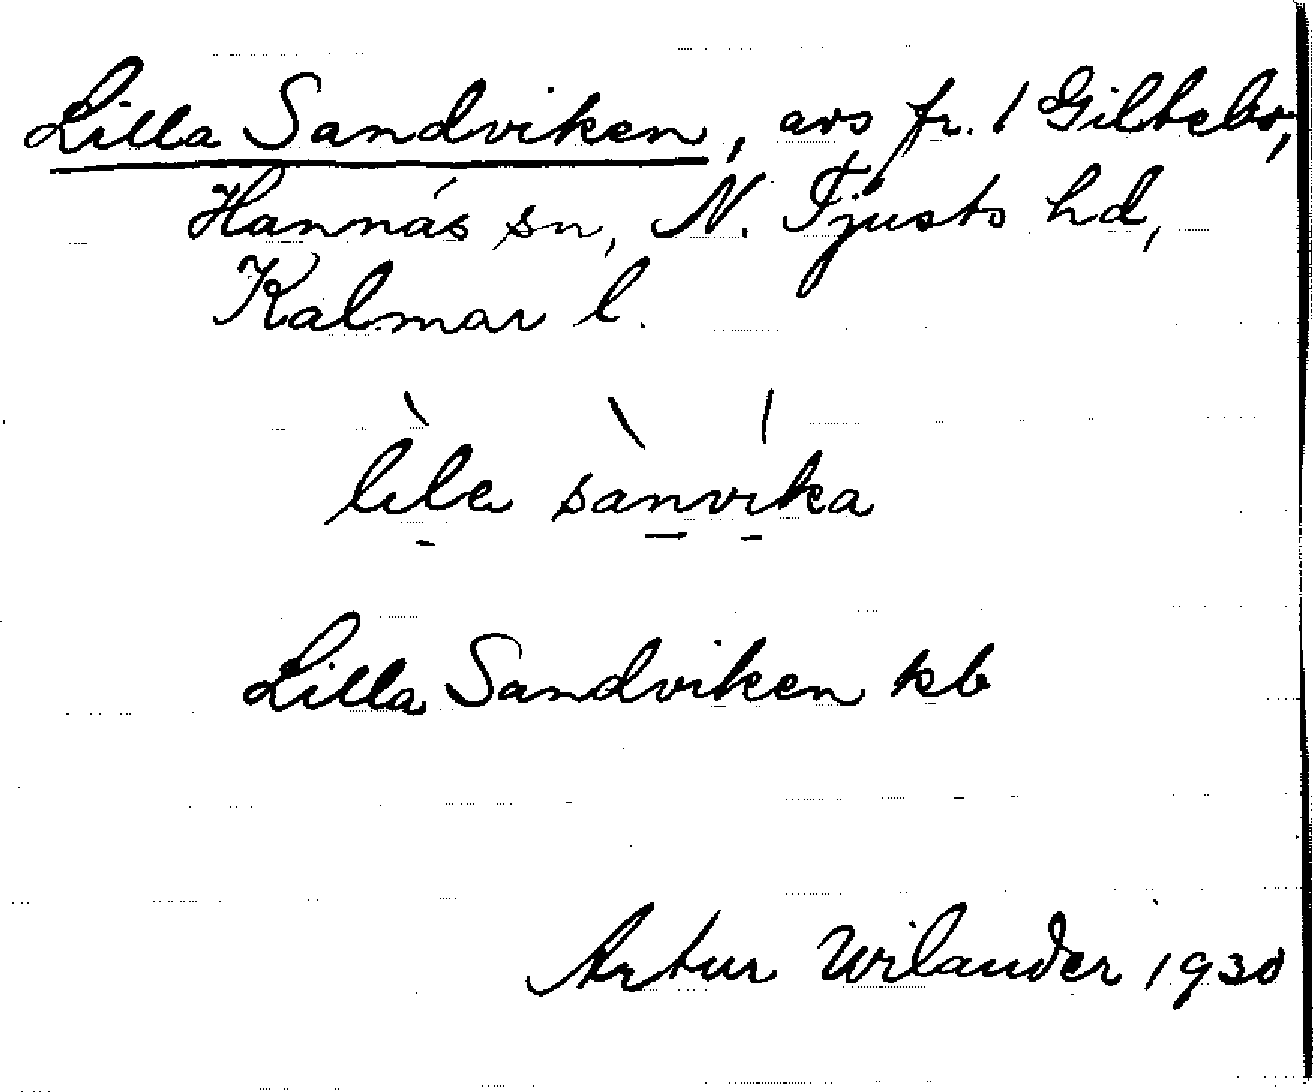 Lilla Sandviken, avs fr. 1 Giltebo,
Hannäs sn, N. Tjusts hd,
Kalmar l.
lila sanvika
Lilla Sandviken kb
Artur Wilander 1930